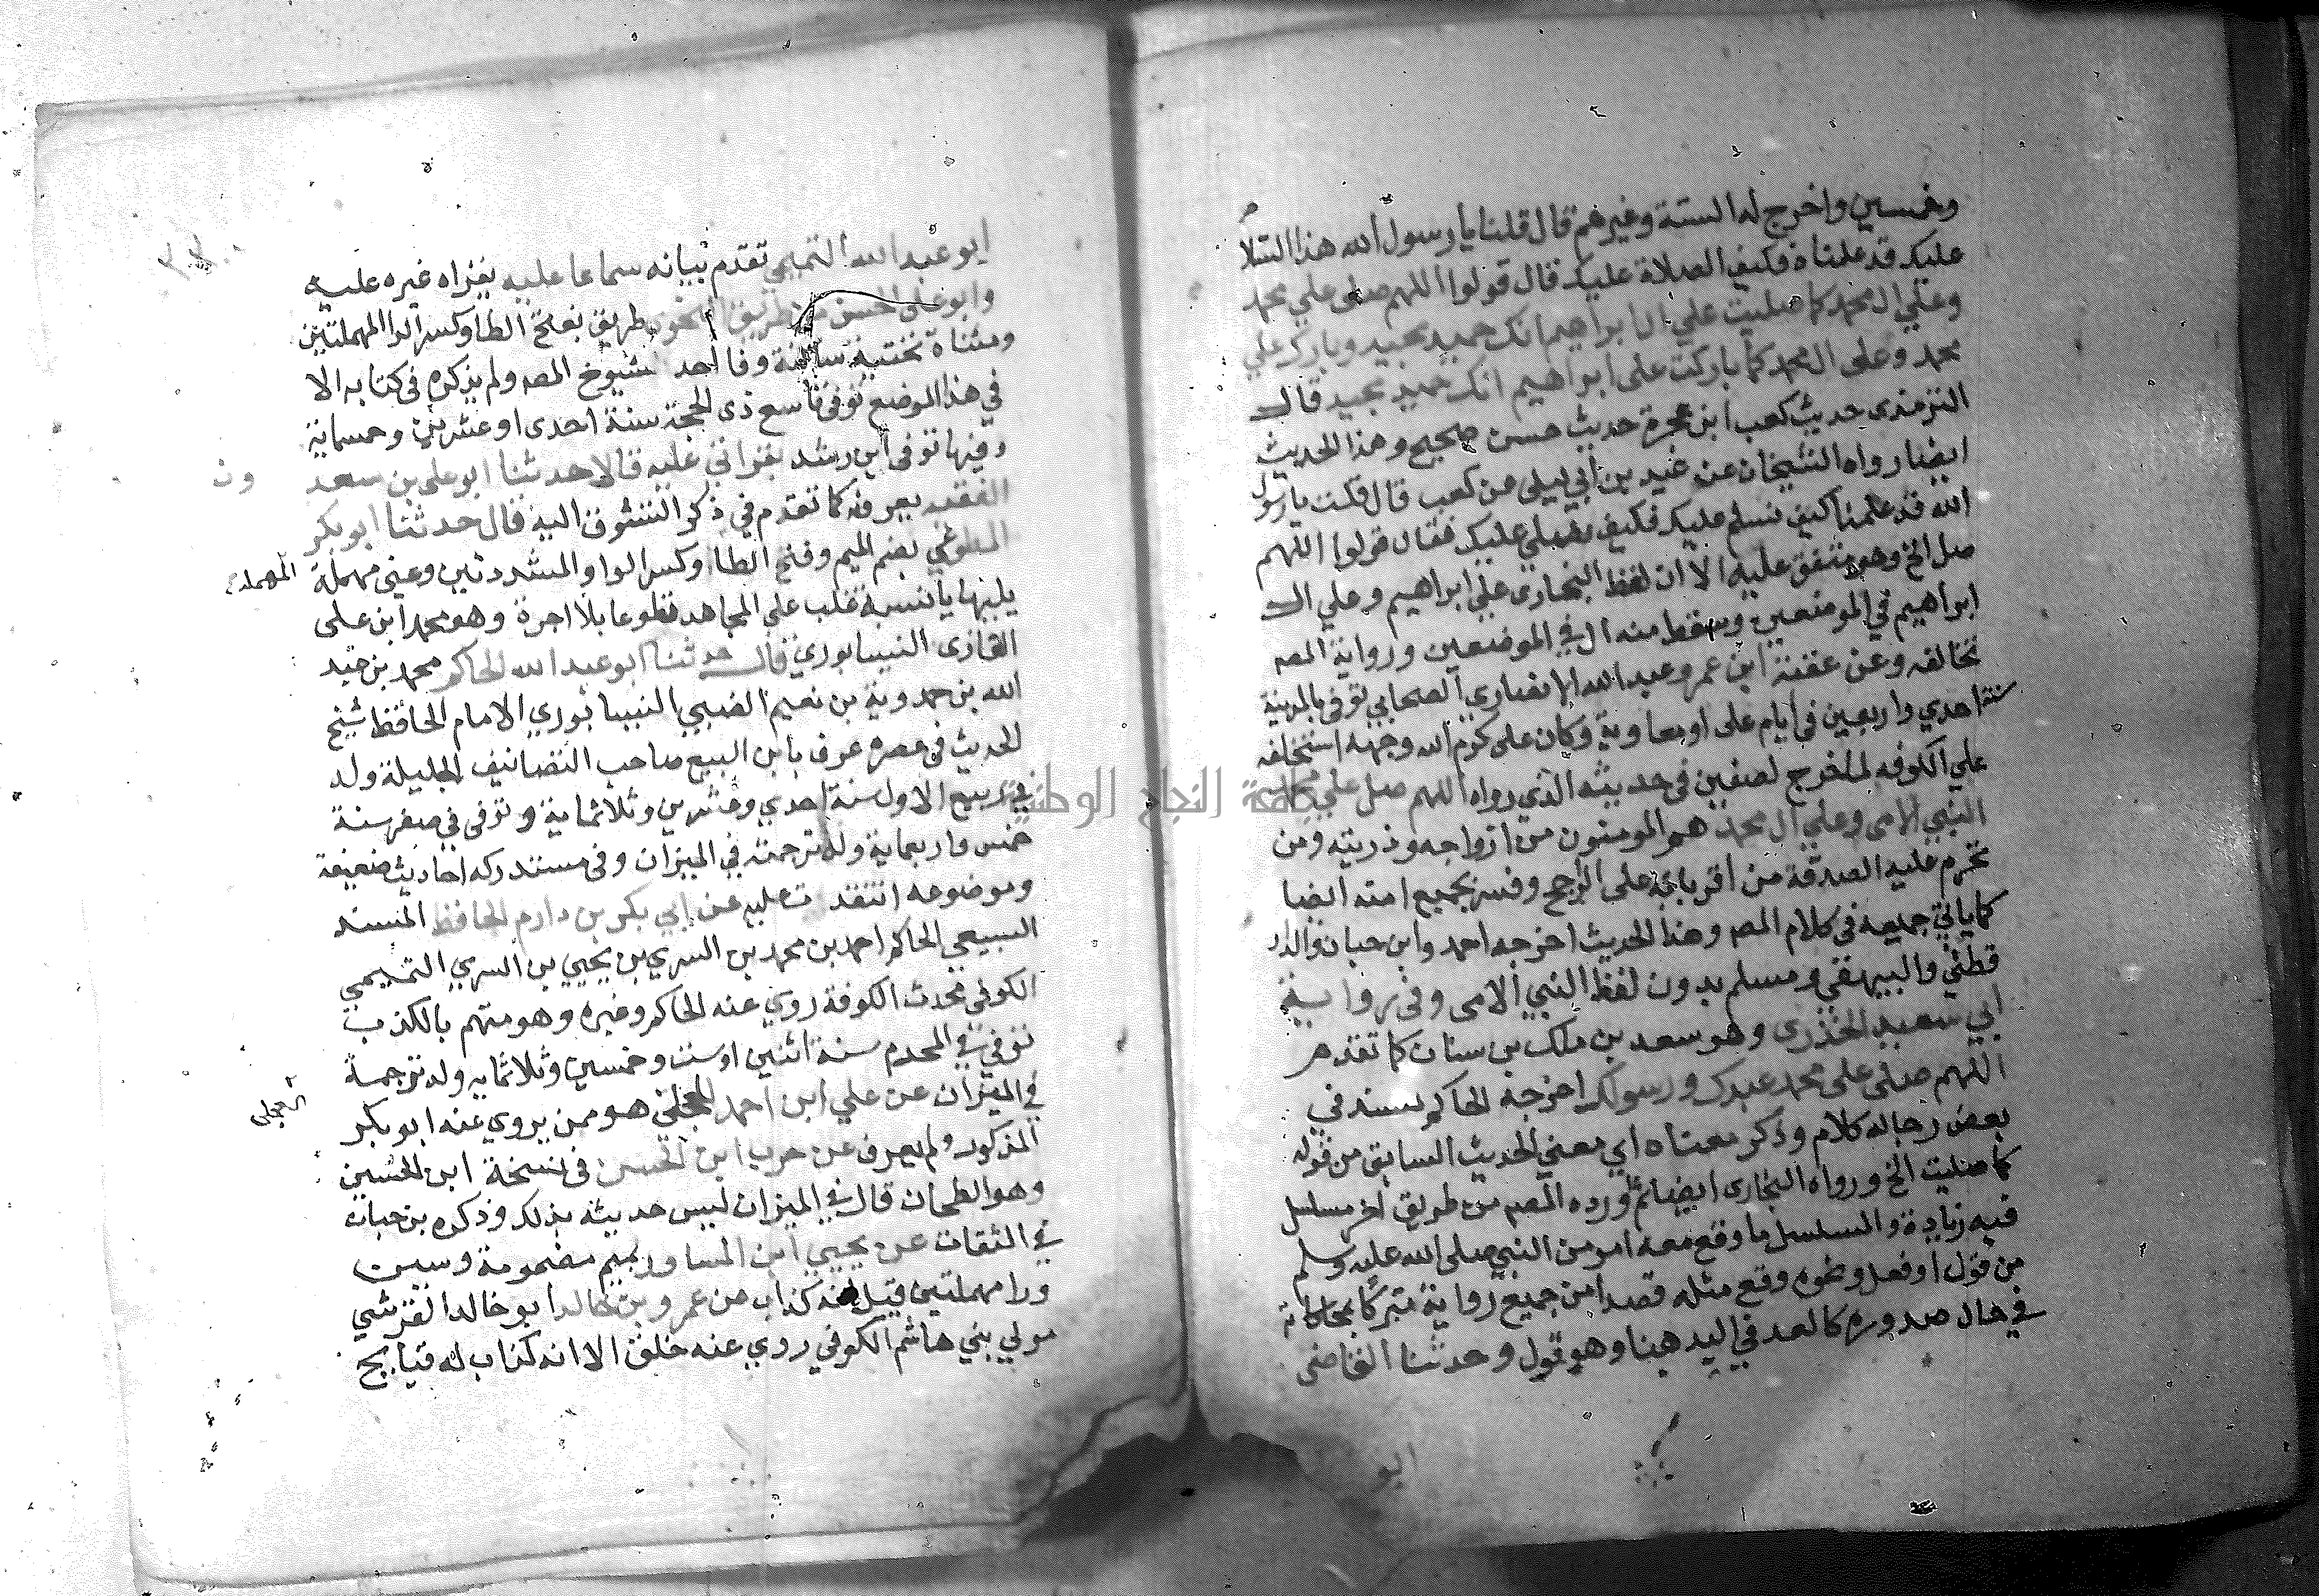 وخمسين واخرج له الستة وغيرهم قال قلنا يا رسول الله هذا السلا
عليك قد علمناه فكيف الصلاة عليك قال قولوا اللهم صل على محمد
وعلى ال محمد كما صليت على ال ابراهيم انك حميد مجيد وبارك على
محمد وعلى ال محمد كما باركت على ابراهيم انك حميد مجيد قال
الترمذي حديث كعب ابن عجرة حديث حسن صحيح وهذا الحديث
ايضا رواه الشيخان عن بن ابي ليلى عن كعب قال قلت يا رسول
الله قد علمنا كيف نسلم عليك فكيف نصلي عليك فقال قولوا اللهم
صل الخ وهو متفق عليه الا ان لفظ البخاري على ابراهيم وعلى ال
ابراهيم في الموضعين وسقط منه ال في الموضعين ورواية المص
تخالفه وعن عقبة ابن عمرو عبد الله الانصاري الصحابي توفي بالمدينة
سنة احدي واربعين في ايام على او معاوية وكان على كرم الله وجهه استخلفه
علي الكوفه لما خرج لصفين في حديثه الذي رواه اللهم صل علي محمد
النبي الامي وعلي ال محمد هم المومنون من ازواجه وذريته ومن
تحرم عليه الصدقة من اقربايه على الراجح وفسر بجميع امته ايضا
كما ياتي جميعه في كلام المص وهذا الحديث اخرجه احمد وابن حبان والدار
قطني والبيهقي ومسلم بدون لفظ النبي الامي وفي رواية
ابي سعيد الخدري وهو سعد بن ملك بن سنان كما تقدم
اللهم صلى على محمد عبدك ورسولك اخرجه الحاكم بسند في
بعض رجاله كلام وذكر معناه اي معني الحديث السابق من قوله
كما صليت الخ ورواه البخاري ايضا ثم اورده المص من طريق اخر مسلسل
فيه زيادة والمسلسل ما وقع معه امر من النبي صلى الله عليه وسلم
من قول او فعل ونحوه وقع مثله قصدا من جميع رواية متبركا بمحاكاته
في حال صدوره كالعد في اليد هنا وهو قول وحدثنا القاضي
ابو
ابو عبد الله التميمي تقدم بيانه سماعا عليه بقراه غيره عليه
وابو على الحسن طريق النحوي طريق بفتح الطا وكسر الرا المهملتين
ومثناة تحتية ساكنة وقا احد شيوخ المص ولم يذكره في كتابه الا
في هذا الموضع توفي تاسع ذي الحجة سنة احدى او عشرين وخمسماية
وفيها توفى ابن رشد بقراتي عليه قالا حدثنا ابو علي بن سعد
الفقيه يعرف كما تقدم في ذكر التشوق اليه قال حدثنا ابو بكر
المطوعي بضم الميم وفتح الطا وكسر الواو المشددتين وعين مهملة
المهملة
يليها يا نسبة غلب على المجاهد تطوعا بلا اجرة وهو محمد ابن على
الغازى النيسابوري قال حدثنا ابو عبد الله الحاكم محمد بن عبد
الله بن حمدوية بن نعيم الضبي النيسابوري الامام الحافظ شيخ
الحديث في عصره عرف بابن البيع صاحب التصانيف الجليلة ولد
في ربيع الاول سنة احدي وعشرين وثلاثماية وتوفي في صفر سنة
خمس واربعماية وله ترجمة في الميزان وفي مستدركه احاديث ضعيفة
وموضوعه انتقدت عليه عن ابي بكر بن دارم الحافظ المسند
السبيعي الحاكم احمد بن محمد بن السري بن يحيي بن السري التميمي
الكوفي محدث الكوفة روي عنه الحاكم وغيره وهو متهم بالكذب
توفي في المحرم سنة اثنين او ست وخمسين وثلاثمايه وله ترجمة
في الميزان عن علي ابن احمد العجلي هو ممن يروي عنه ابو بكر
العجلي
المذكور ولم يعرف عن حرب ابن الحسن في نسخة ابن الحسين
وهو الطحان قال في الميزان ليس حديثه بذلك وذكره بن حبان
في الثقات عن يحيي ابن المساور بميم مضمومة وسين
ورا مهملتين قيل انه كذاب عن عمرو بن خالد ابو خالد القرشي
مولي بني هاشم الكوفي روي عنه خلق الا انه كذاب له قبايح
جامعة النجاح الوطنية